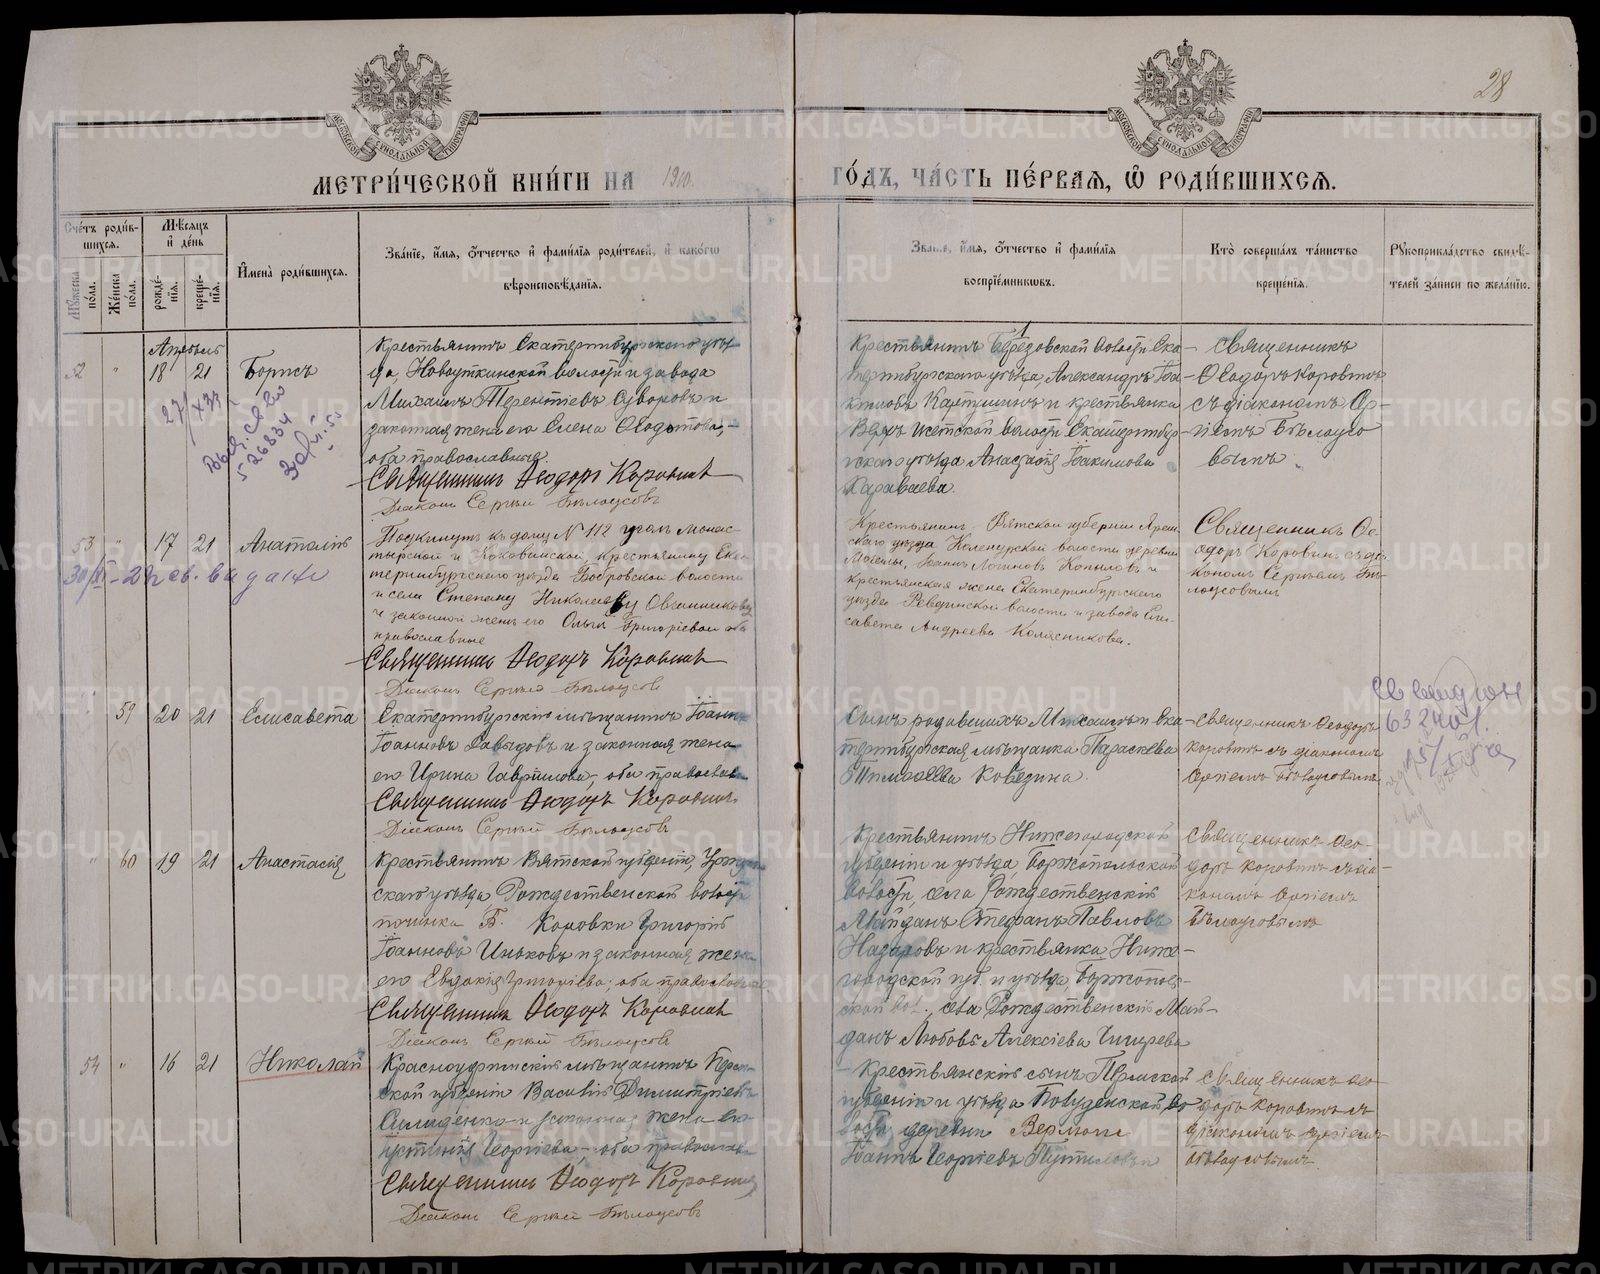 28
МЕТРИ́ЧЕСКОЙ КНИ́ГИ НА 1910.
ГО́ДЪ, ЧА́СТЬ ПЕ́РВАЯ, Ѡ҆ РОДИ́ВШИХСЯ.
Сче́тъ роди́в-
шихся.
Мꙋ́жеска по́ла.
Же́нска по́ла.
Мѣ́сяцъ и де́нь
рожде́-
нїя.
креще́-
нїя.
И҆мена̀ роди́вшихся.
Зва́нїе, и҆́мя, ѻ҆́тчество и҆ фами́лїя роди́телей, и҆ како́гѡ
вѣроисповѣ́данїя.
Зва́нїе, и҆́мя, ѻ҆́тчество и҆ фами́лїя
воспрїе́мниквъ.
Кто̀ соверша́лъ та́инство
креще́нїя.
Рꙋкоприкла́дство свидѣ́-
телей за́писи по жела́нїю.
52 " Апрѣль 18 21 Борисъ
Крестьянинъ Екатеринбургскаго уѣз-
да, Новоуткинской волости и завода
Михаилъ Терентіевъ Суворовъ и
законная жена его Елена Ѳедотова,–
оба православные
Священникъ Ѳеодоръ Коровинъ
Діаконъ Сергѣй Бѣлоусовъ
Крестьянинъ Березовской волости Ека-
теринбургскаго уѣзда Александръ
и крестьянка
Верхъ Исетской волости Екатеринбур-
гскаго уѣзда Анастасія Іоакимова
Караваева.
Священникъ
Ѳеодоръ Коровинъ
съ діакономъ Сер-
гіемъ Бѣлоусо
вымъ
27/X 37
526834
53 " 17 21 Анатолій
Подкинутъ къ дому № 112 уголъ Монас-
тырской и Коковинской, крестьянину Ека-
теринбургскаго уѣзда Бобровской волости
и села Степану Николаеву Овчинникову
и законной женѣ его Ольгѣ Григоріевой оба
православные
Священникъ Ѳеодоръ Коровинъ
Діаконъ Сергѣй Бѣлоусовъ
Крестьянинъ Вятской губерніи Яран-
скаго уѣзда волости деревни
Іоаннъ Логиновъ Копыловъ и
крестьянская жена Екатеринбургскаго
уѣзда Ревдинской волости и завода Ели-
савета Андреева Колясникова.
Священникъ Ѳе-
одоръ Коровинъ съ діа-
кономъ Сергѣемъ Бѣ-
лоусовымъ
30/XI – св. выдано
" 59 20 21 Елисавета
Екатеринбургскій мѣщанинъ Іоаннъ
Іоанновъ Давыдовъ и законная жена
его Ирина Гавріилова, оба православн
Священникъ Ѳеодоръ Коровинъ
Діаконъ Сергѣй Бѣлоусовъ
Сынъ родившихъ Михаилъ и Ека-
теринбургская мѣщанка Параскева
Тимоѳеева Кобедина.
Священникъ Ѳеодоръ
Коровинъ съ діакономъ
Сергіемъ Бѣлоусовымъ
" 60 19 21 Анастасія
Крестьянинъ Вятской губерніи, Уржум
скаго уѣзда, Рождественской волости
починка Б. Коровки Григорій
Іоанновъ Иньковъ и законная жена
его Евдокія Григоріева; оба православные
Священникъ Ѳеодоръ Коровинъ
Діаконъ Сергѣй Бѣлоусовъ
Крестьянинъ Нижегородской
губерніи и уѣзда,
волости, села Рождественскій
Майданъ Стефанъ Павловъ
Назаровъ и крестьянка Ниже-
городской губ. и уѣзда,
ской вол. села Рождественскій Май-
данъ Любовь Алексіева
Священникъ Ѳео-
доръ Коровинъ съ діа-
кономъ Сергіемъ
Бѣлоусовымъ
54 " 16 21 Николай
Красноуфимскій мѣщанинъ Перм-
ской губерніи Василій Димитріевъ
и законная жена его
Устинія Георгіева, – оба православн
Священникъ Ѳеодоръ Коровинъ
Діаконъ Сергѣй Бѣлоусовъ
Крестьянскій сынъ Пермской
губерніи и уѣзда во
лости деревни
Іоаннъ Георгіевъ Путиловъ
Священникъ Ѳео-
доръ Коровинъ съ
діакономъ Сергіемъ
Бѣлоусовымъ